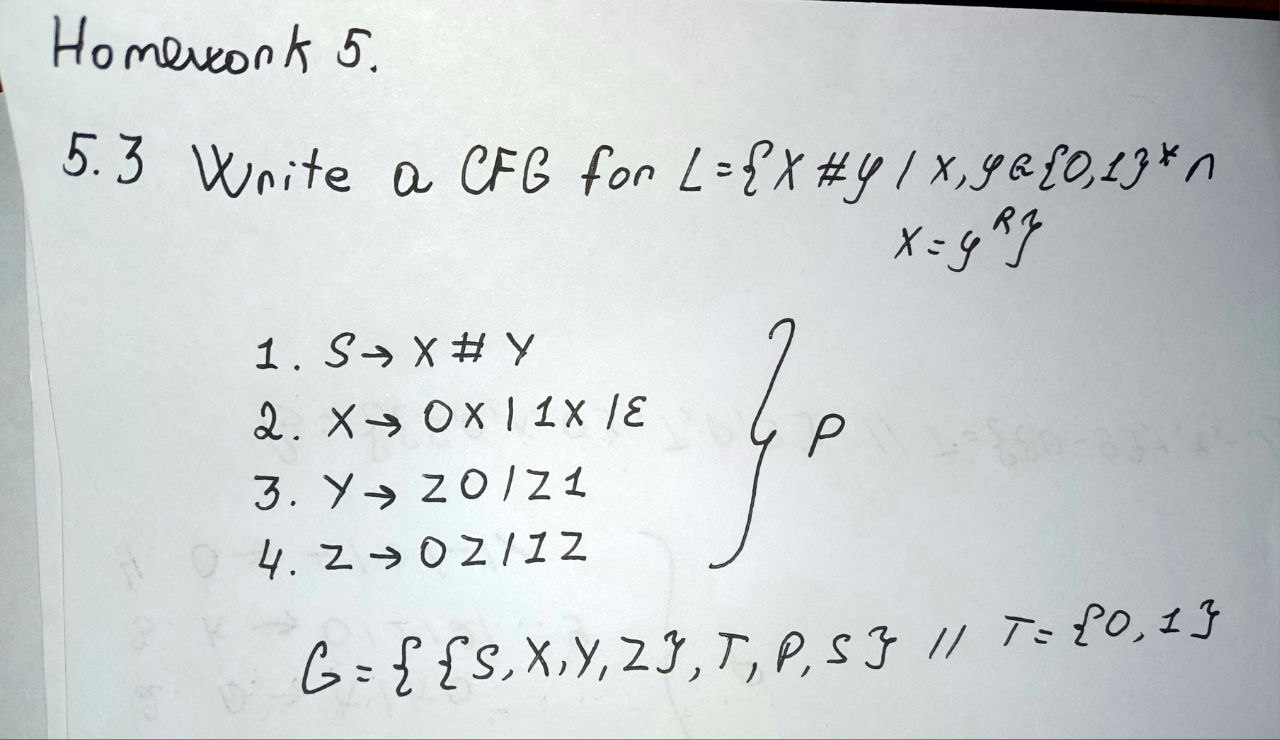 Homework 5.
5.3 Write a CFG for L={X#y | x,y∈{0,1}* ∩
x=y^R}
1. S→X#Y
2. X→0X|1X|ε
3. Y→Z0|Z1
4. Z→0Z|1Z
} P
G={{S,X,Y,Z},T,P,S} // T={0,1}